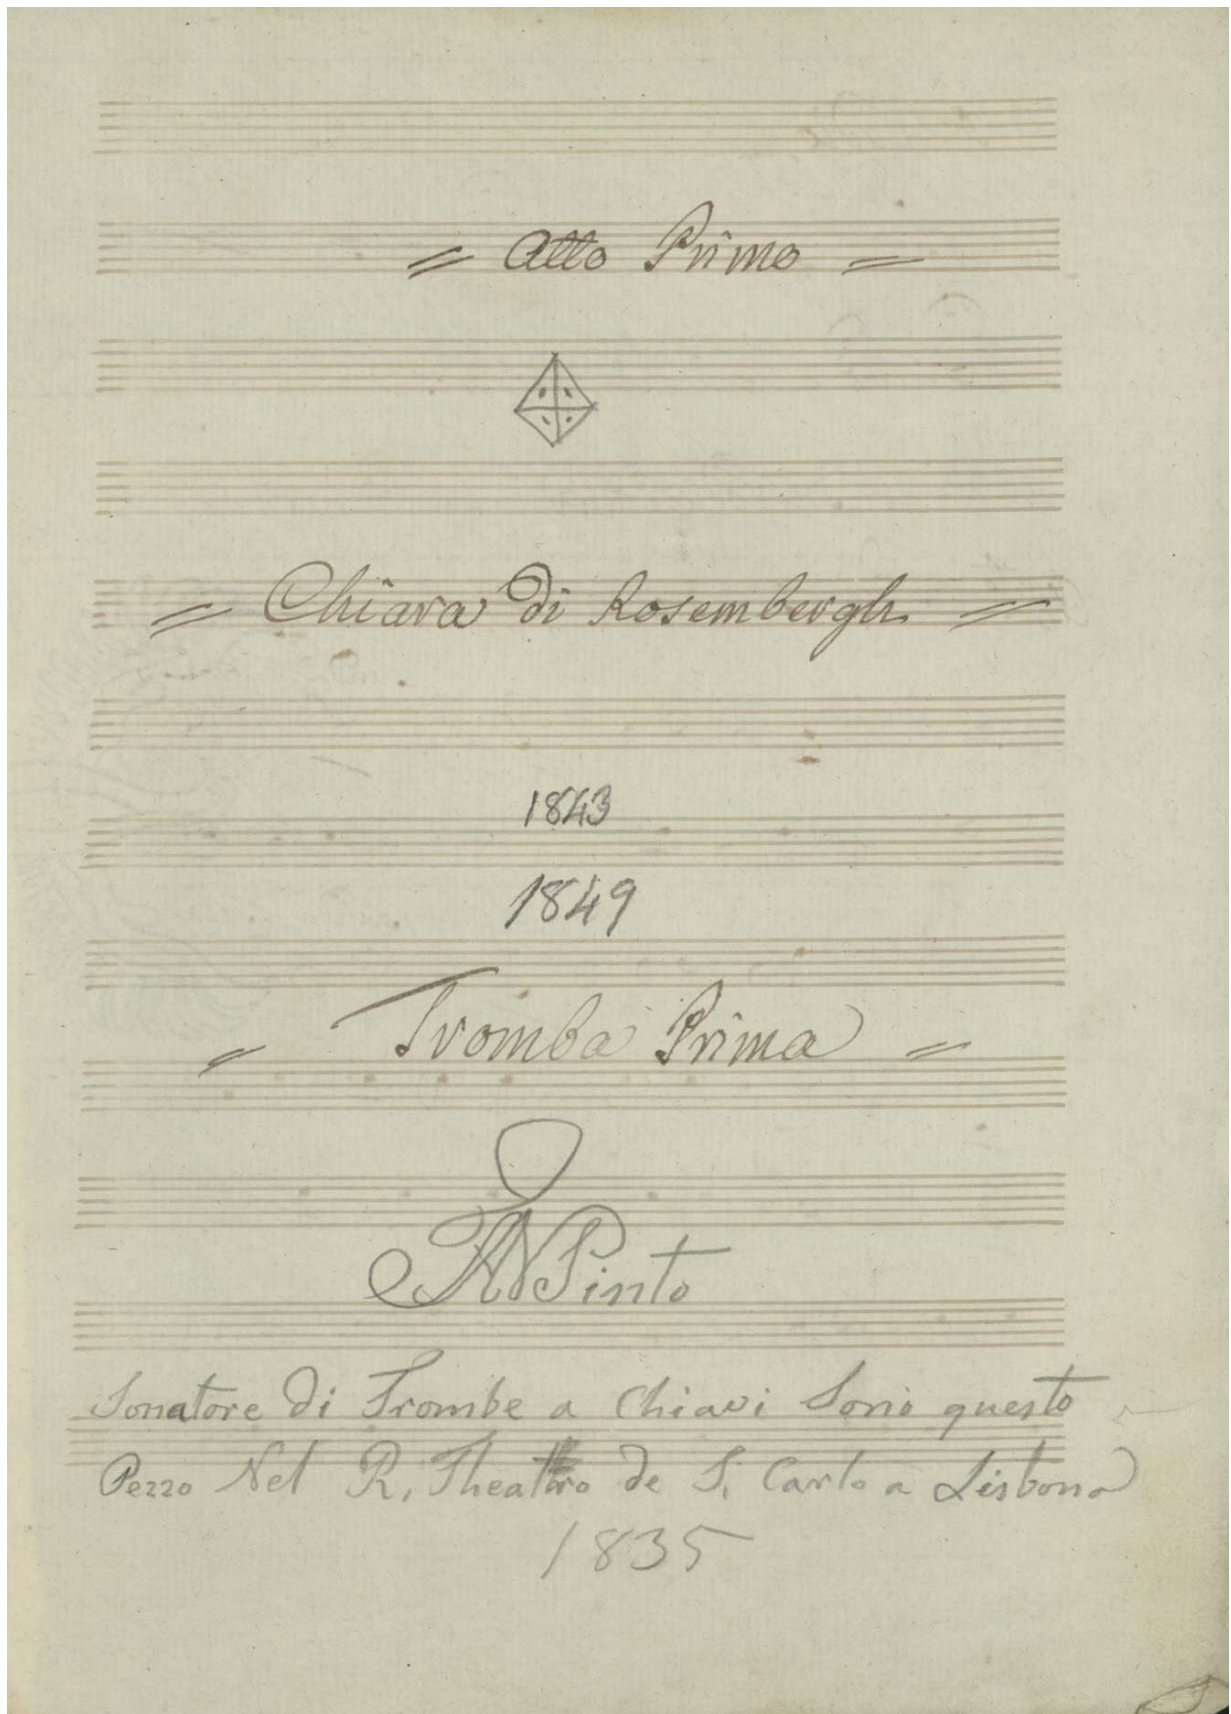 = Atto Primo =
= Chiara di Rosembergh =
1843
1849
= Tromba Prima =
Pinto
Sonatore di Trombe a Chiavi Sonò questo
Pezzo Nel R. Theattro de S. Carlo a Lisbona
1835